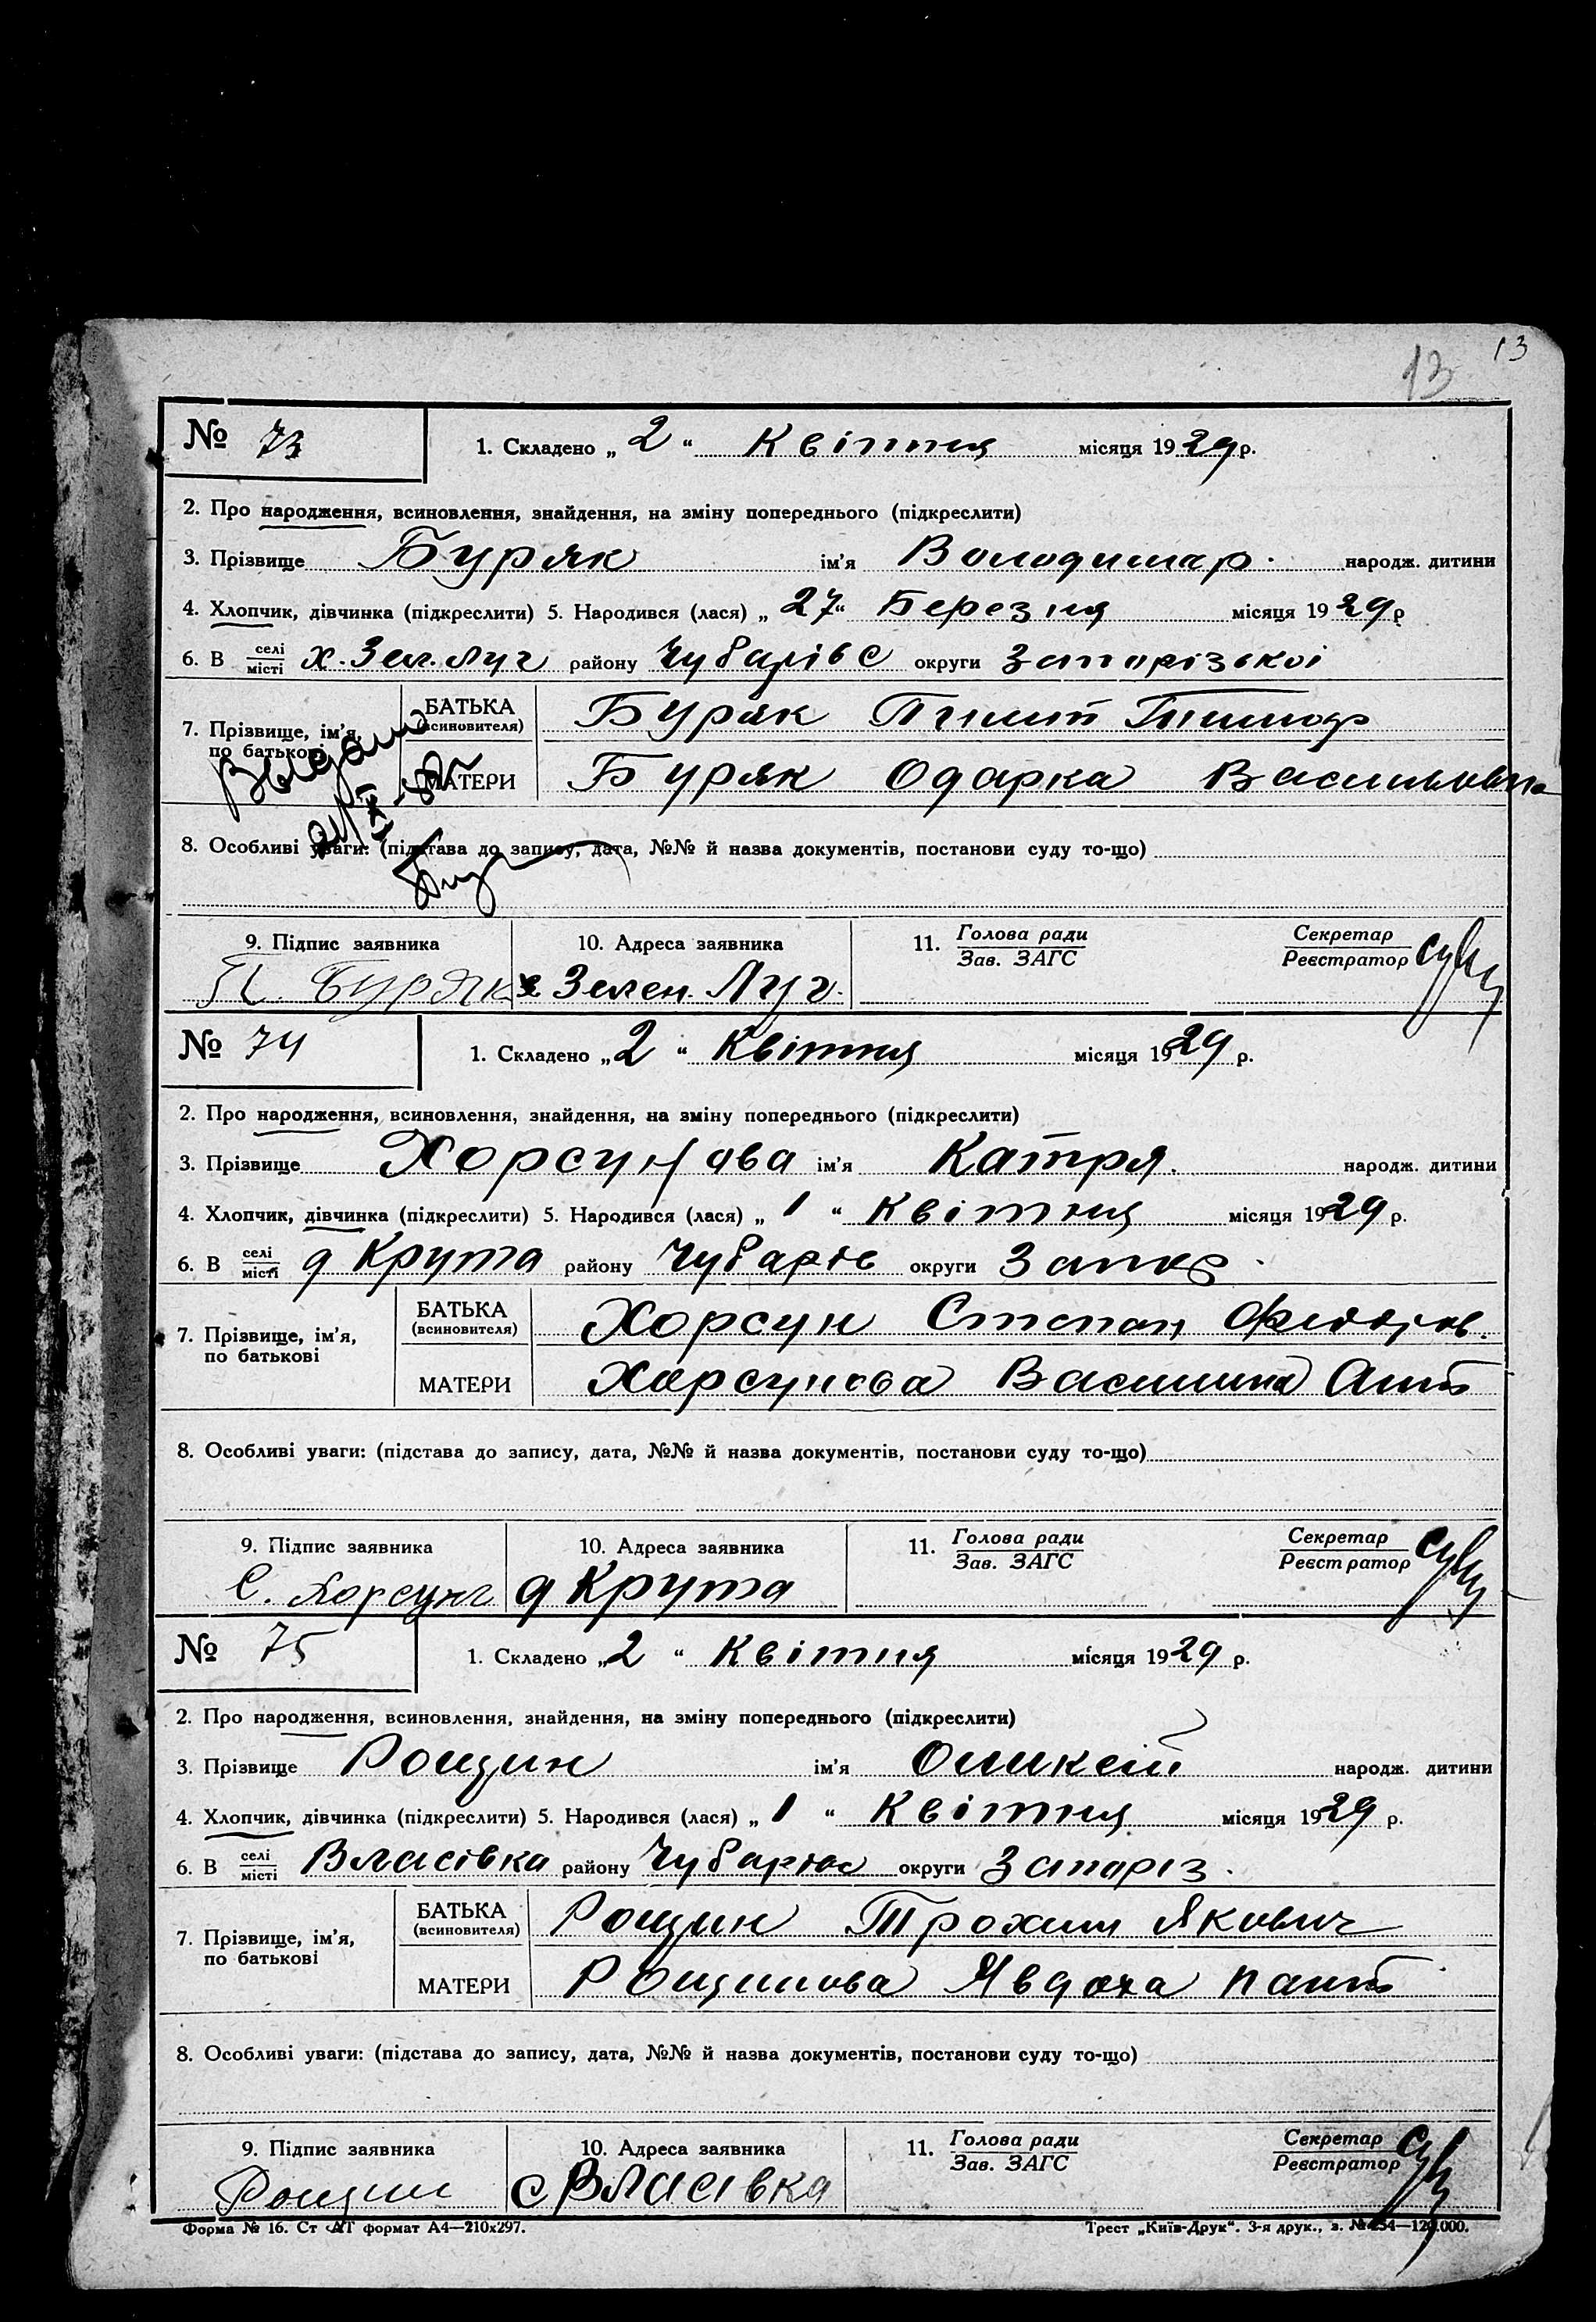 13 13
№ 73 1. Складено „ 2 “ Квітня місяця 1929 р.
2. Про народження, всиновлення, знайдення, на зміну попереднього (підкреслити)
3. Прізвище Буряк ім'я Володимар народж. дитини
4. Хлопчик, дівчинка (підкреслити) 5. Народився (лася) „ 27 “ Березня місяця 1929 р
6. В селі місті х. Зел. Луг району Чубарівс округи Запорізької
7. Прізвище, ім'я, по батькові БАТЬКА (всиновителя) Буряк Тимоф
МАТЕРИ Буряк Одарка Васильовна
Выдано
8. Особливі уваги: (підстава до запису, дата, №№ й назва документів, постанови суду то-що)
9. Підпис заявника 10. Адреса заявника 11. Голова ради Зав. ЗАГС Секретар Реєстратор
П. Буряк х Зелен. Луг.
№ 74 1. Складено „ 2 “ Квітня місяця 1929 р.
2. Про народження, всиновлення, знайдення, на зміну попереднього (підкреслити)
3. Прізвище Хорсунова ім'я Катря. народж. дитини
4. Хлопчик, дівчинка (підкреслити) 5. Народився (лася) „ 1 “ Квітня місяця 1929 р.
6. В селі місті д Крута району Чубарів округи Запор
7. Прізвище, ім'я, по батькові БАТЬКА (всиновителя) Хорсун Степан Федоров.
МАТЕРИ Хорсунова Василина Ант
8. Особливі уваги: (підстава до запису, дата, №№ й назва документів, постанови суду то-що)
9. Підпис заявника 10. Адреса заявника 11. Голова ради Зав. ЗАГС Секретар Реєстратор
С. Хорсун д Крута
№ 75 1. Складено „ 2 “ Квітня місяця 1929 р.
2. Про народження, всиновлення, знайдення, на зміну попереднього (підкреслити)
3. Прізвище Рощин ім'я Олексій народж. дитини
4. Хлопчик, дівчинка (підкреслити) 5. Народився (лася) „ 1 “ Квітня місяця 1929 р.
6. В селі місті Власівка району Чубарівс округи Запоріз.
7. Прізвище, ім'я, по батькові БАТЬКА (всиновителя) Рощин Трохим Якович
МАТЕРИ Рощинова Явдоха Пант
8. Особливі уваги: (підстава до запису, дата, №№ й назва документів, постанови суду то-що)
9. Підпис заявника 10. Адреса заявника 11. Голова ради Зав. ЗАГС Секретар Реєстратор
Рощин с Власівка
Форма № 16. Ст АТ формат А4—210х297. Трест „Київ-Друк“. 3-я друк., з.